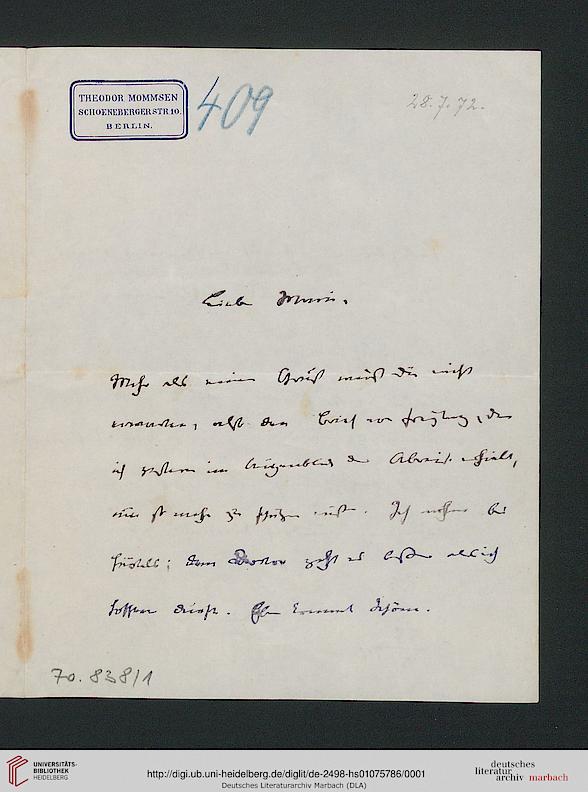 THEODOR MOMMSEN
SCHOENEBERGERSTR 10.
BERLIN.
409
28.7.72.
Liebe Marie,
Mehr als einen Gruß mußt du nicht
erwarten, als den Brief von Freytag, den
ich gestern im Augenblick der Abreise erhielt,
mehr zu Ich bei
; dem Doctor geht es besser als ich
hoffen durfte. Schöne.
70.838/1
UNIVERSITÄTS-
BIBLIOTHEK
HEIDELBERG
http://digi.ub.uni-heidelberg.de/diglit/de-2498-hs01075786/0001
Deutsches Literaturarchiv Marbach (DLA)
deutsches
literatur
archiv marbach